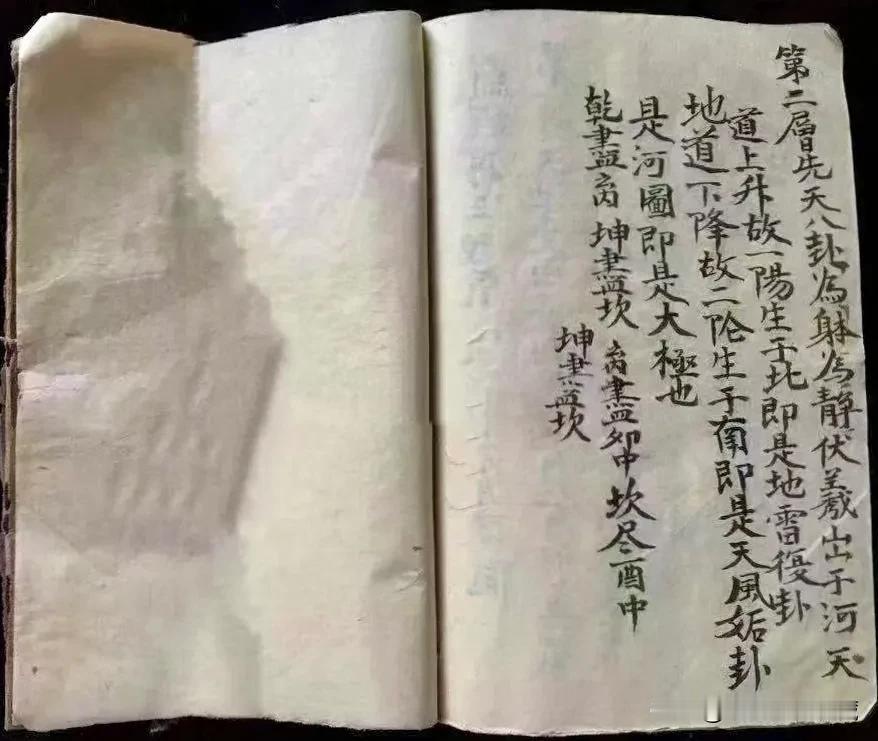 第二層先天八卦為躰為靜伏羲出于河天
道上升故一陽生于北即是地雷復卦
地道下降故二陰生于南即是天風姤卦
是河圖即是大極也
乾盡离 坤盡坎 离盡卯中 坎尽酉中
坤盡坎